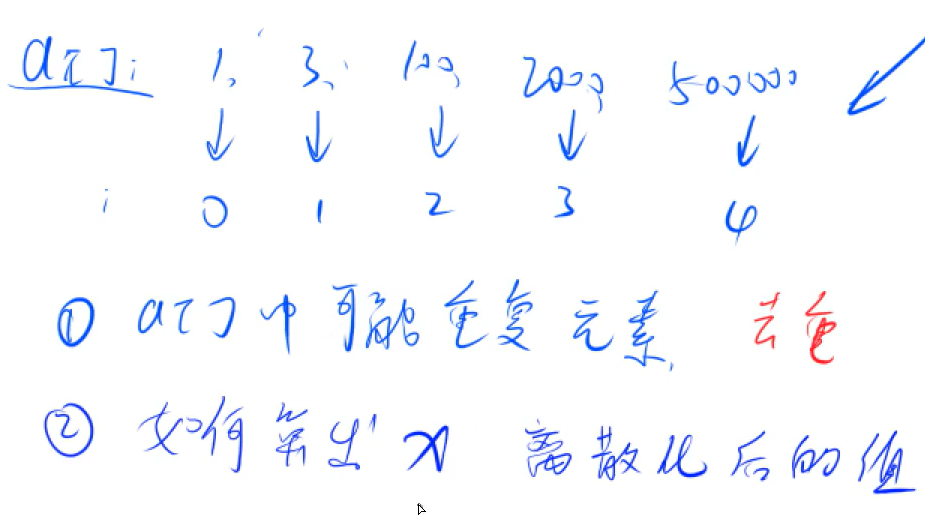 a[]: 1, 3, 100, 2000, 500000
i 0 1 2 3 4
① a[]中可能重复元素 去重
② 如何算出 x 离散化后的值